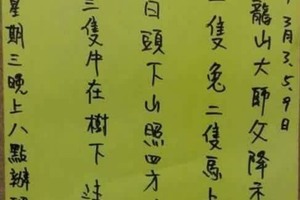 3月3.5.9
龍山大師父降示
一隻兔二隻馬上
白頭下山照四方
三隻牛在樹下
星期三晚上八點辦